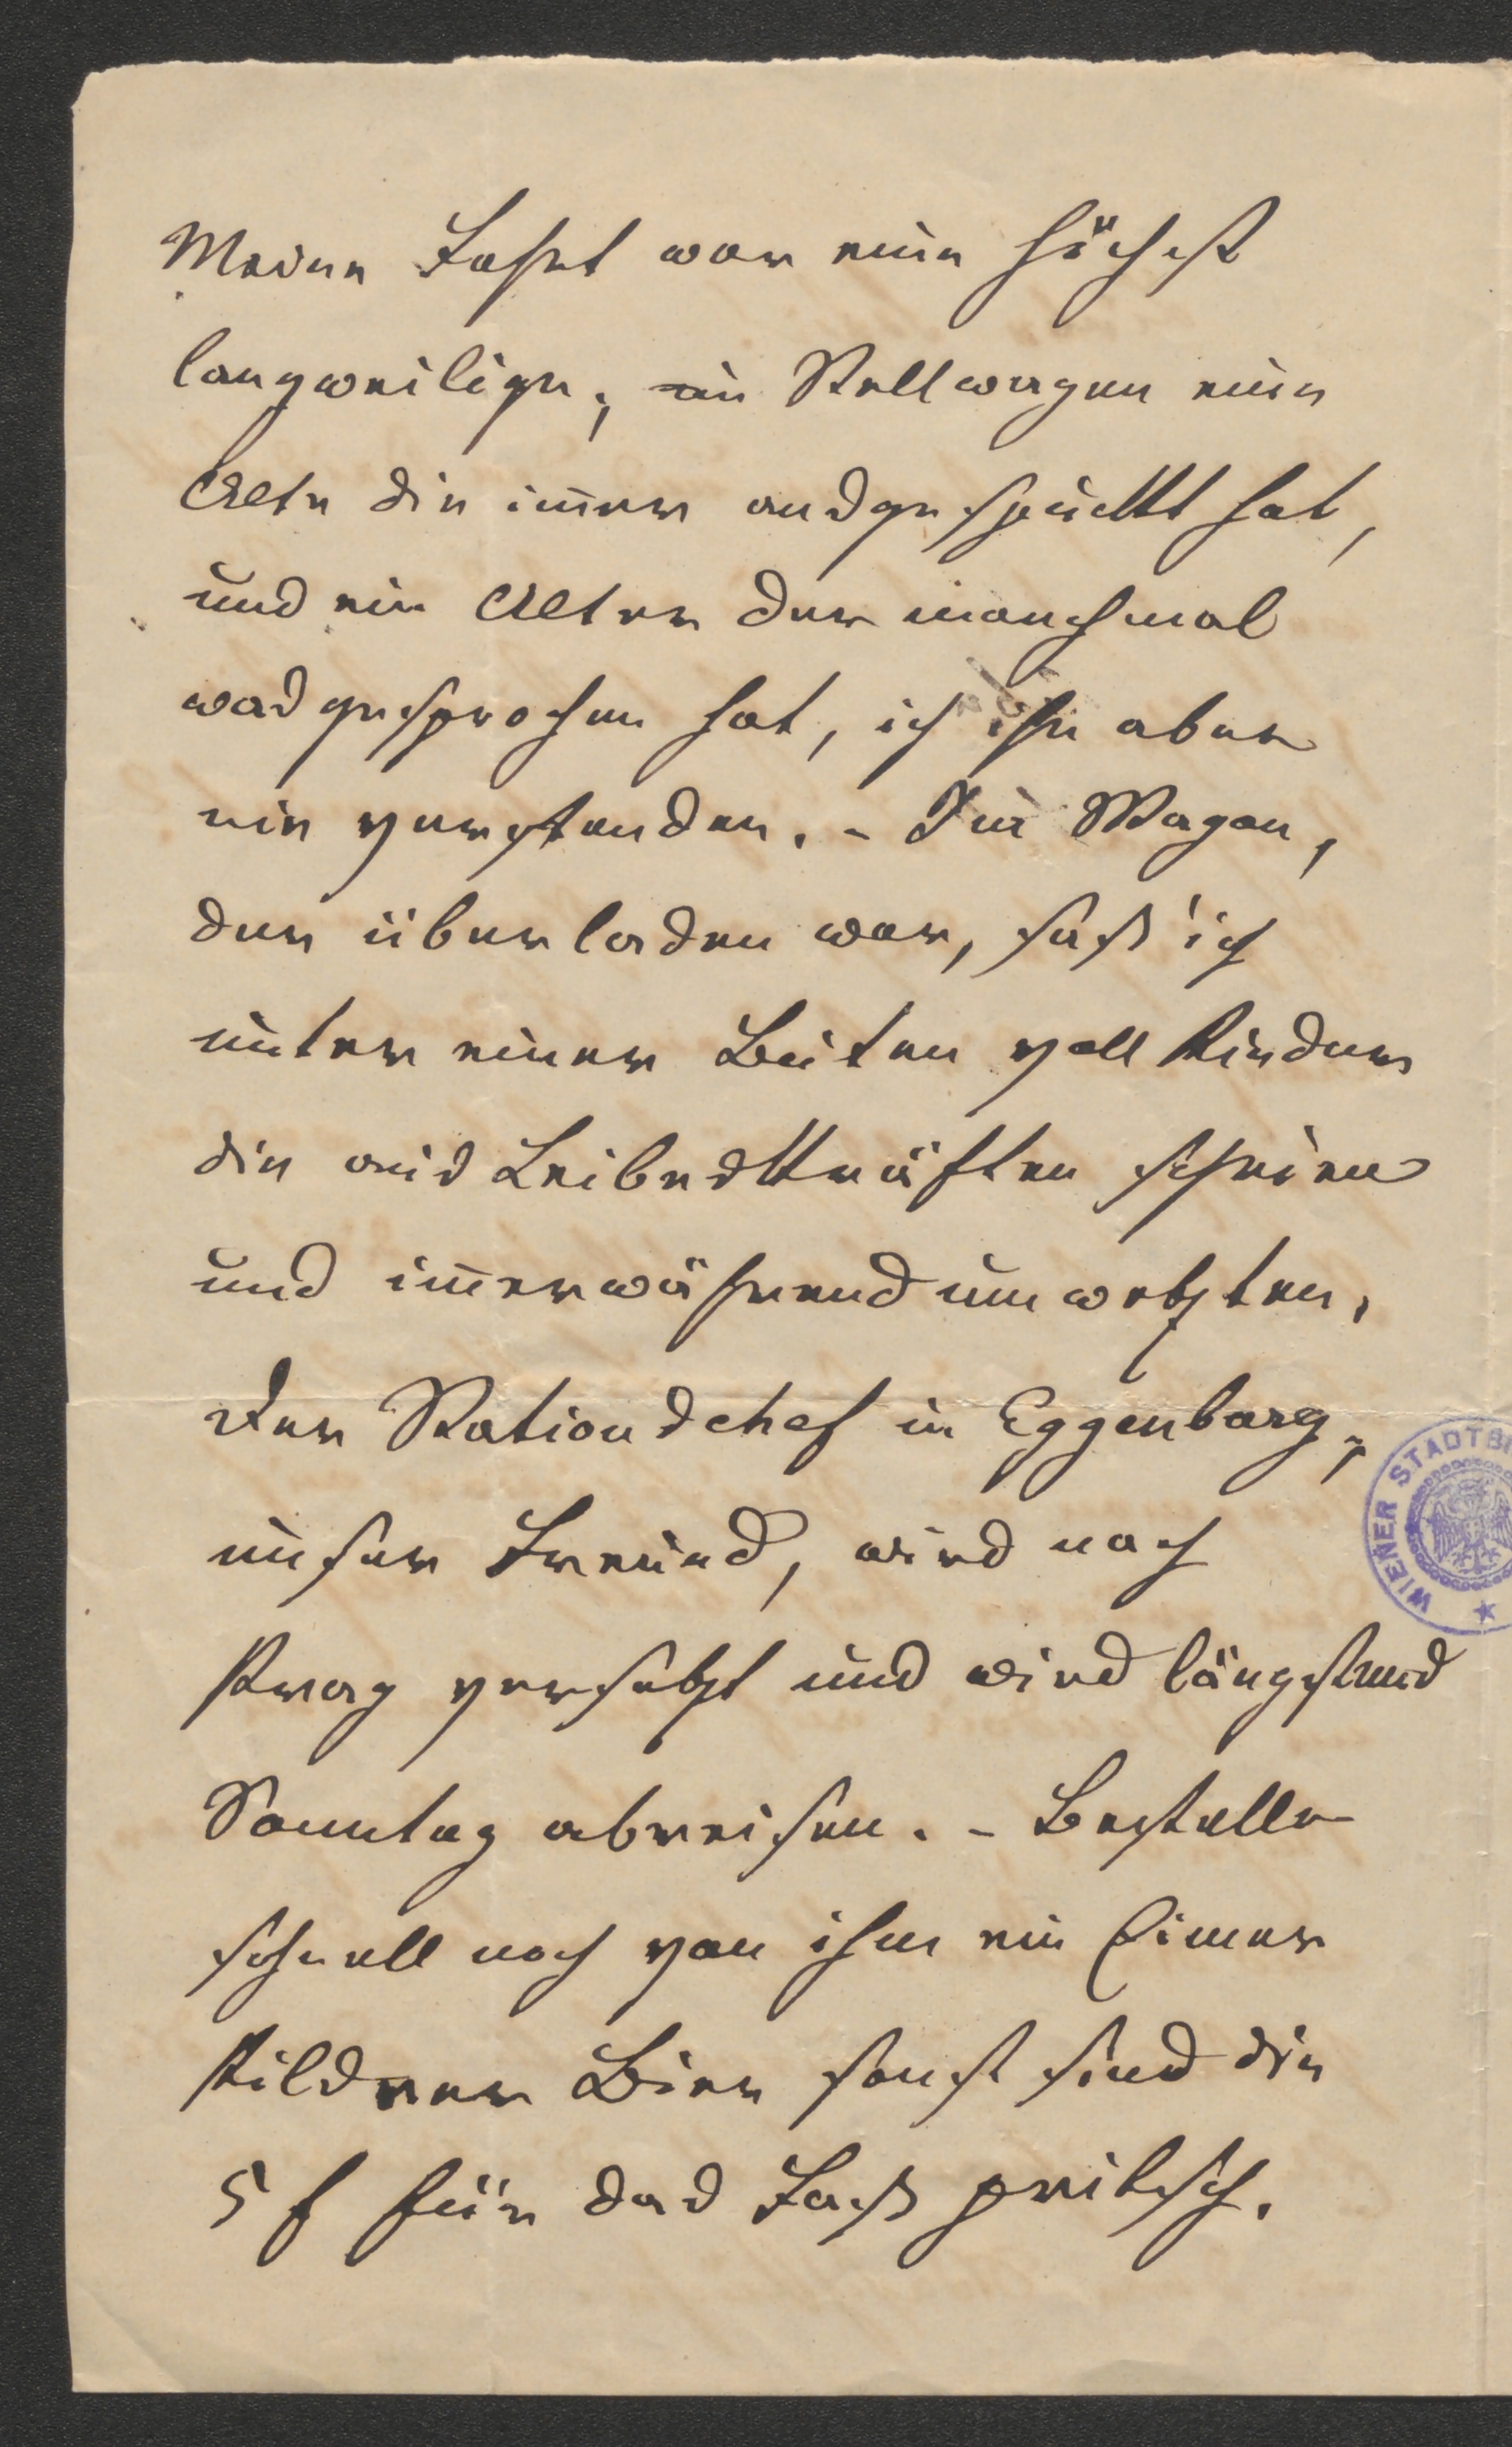 Meine Fahrt war eine höchst
langweilige; im Stellwagen eine
Alte die im̅er ausgespuckt hat,
und ein Alter der manchmal
was gesprochen hat, ich ihn aber
nie verstanden. – Im Wagon,
der überladen war, saß ich
unter einer Butten voll Kinder
die aus Leibeskräften schrien
und im̅erwährend umwetzten.
Der Stationschef in Eggenburg,
unser Freund, wird nach
Prag versetzt und wird längstens
Sonntag abreisen. – Bestelle
schnell noch von ihm ein Eimer
Pilsner Bier sonst sind die
5 f für das Faß pritsch.
WIENER STADTBI